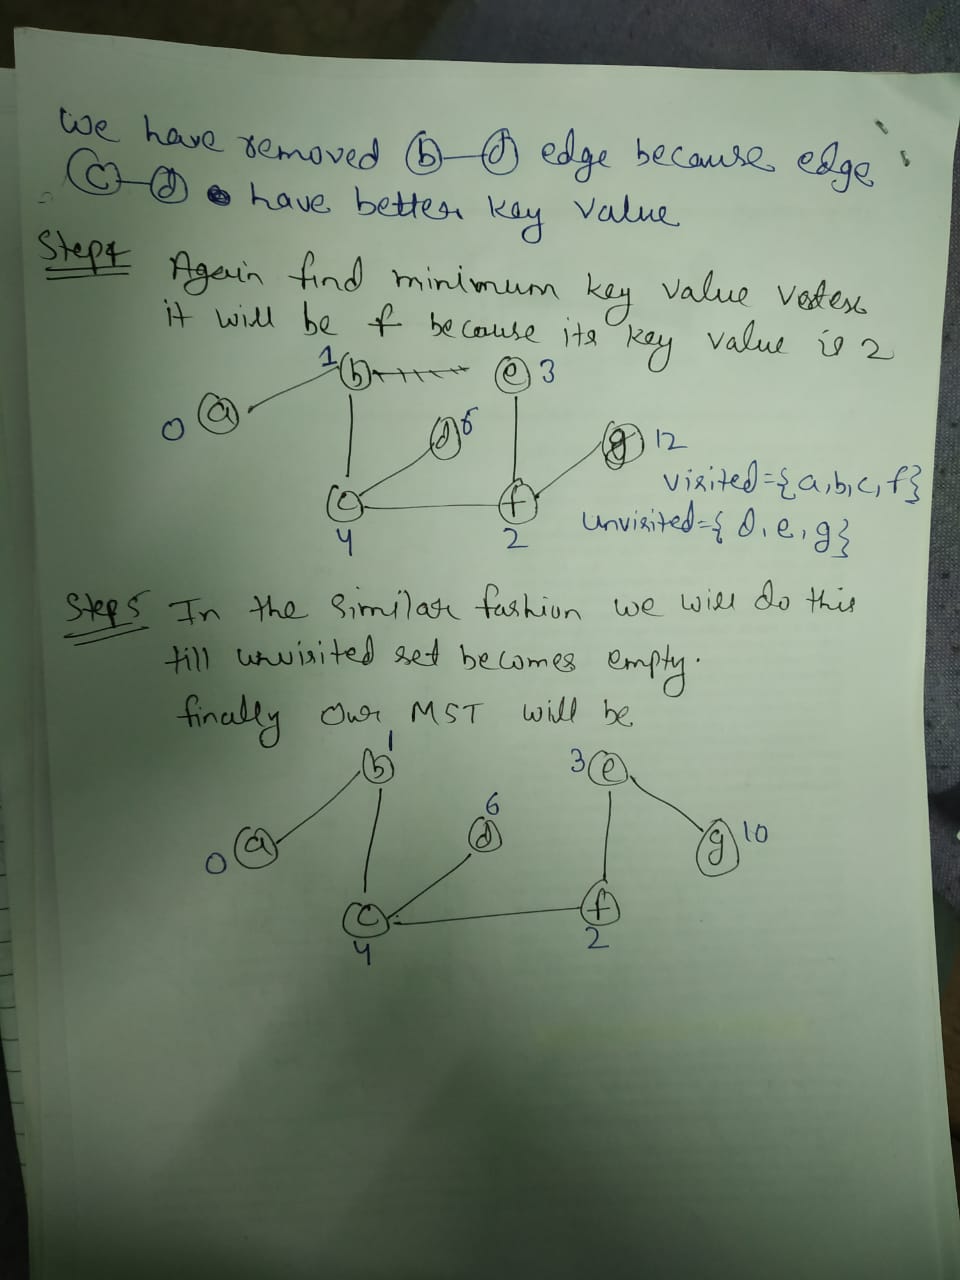 We have removed b—d edge because edge
c—d have better key value
Step4 Again find minimum key value vertex
it will be f because its key value is 2
1 b e 3
0 a d 6
g 12
visited={a,b,c,f}
c f unvisited={d,e,g}
4 2
Step5 In the similar fashion we will do this
till unvisited set becomes empty.
finally our MST will be
1
b 3 e
6
0 a d g 10
c f
4 2